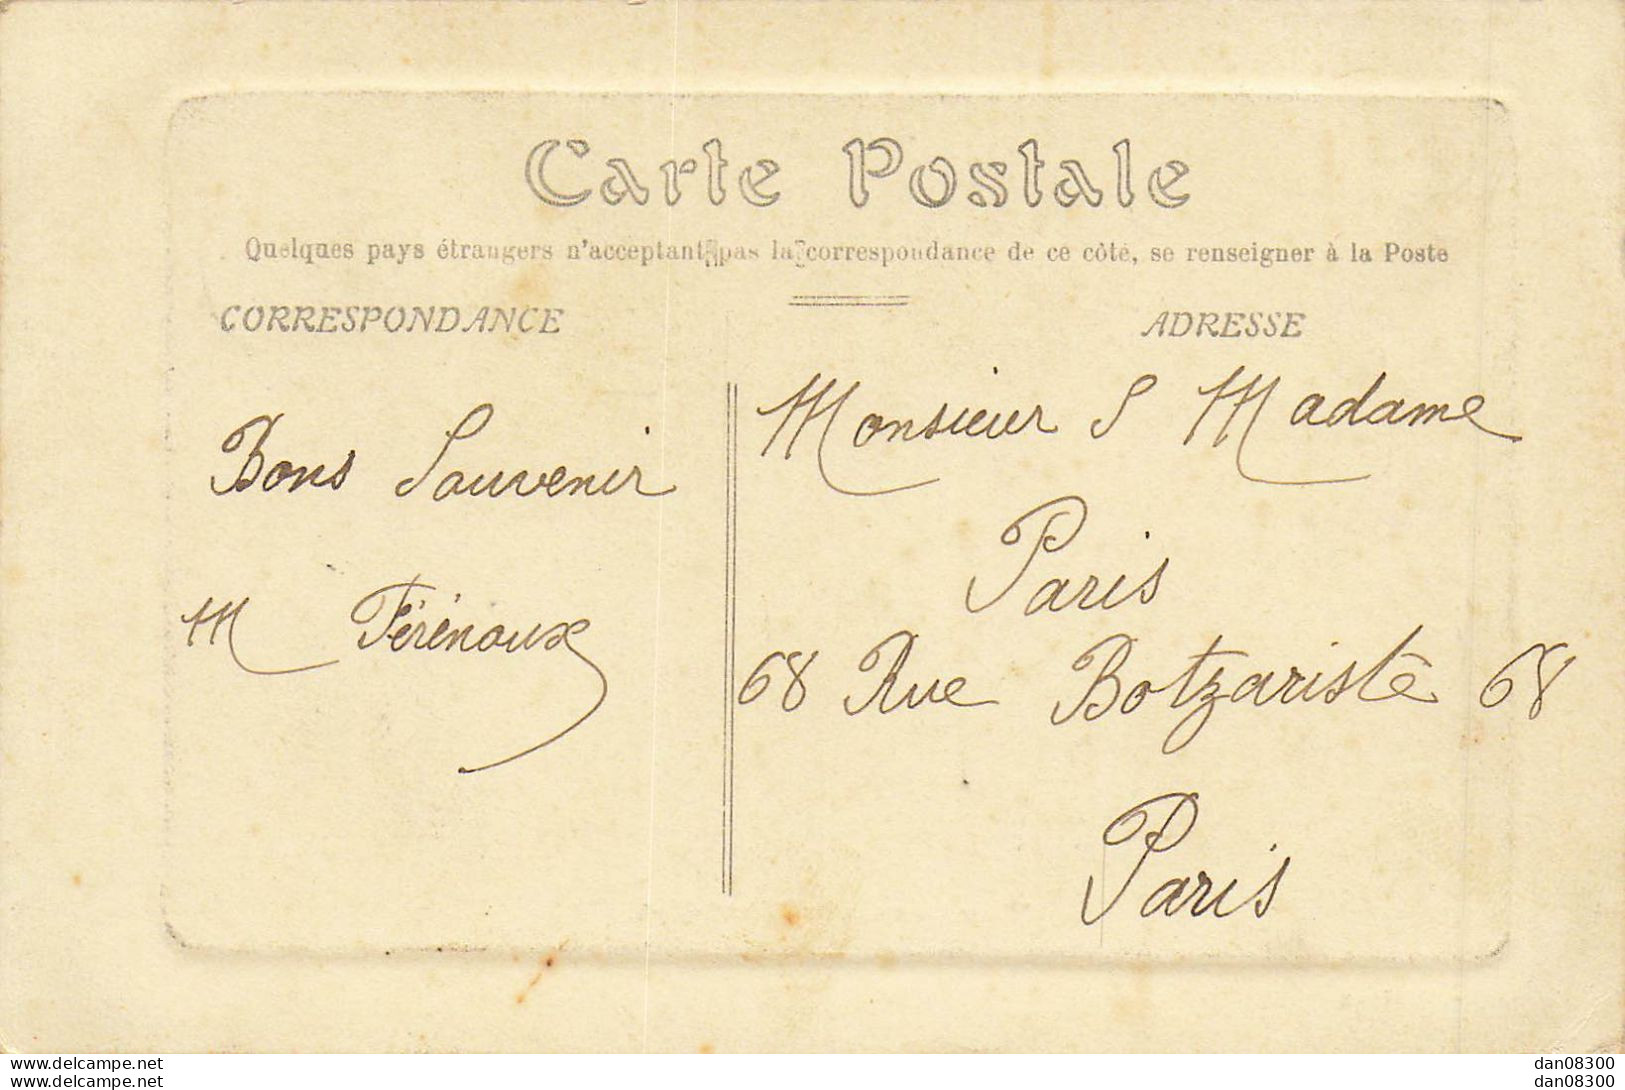 Carte Postale
Quelques pays étrangers n'acceptant pas la correspondance de ce côté, se renseigner à la Poste
CORRESPONDANCE
ADRESSE
Bons Souvenir
M Férénoux
Monsieur & Madame
Paris
68 Rue Botzariste 68
Paris
www.delcampe.net
www.delcampe.net
dan08300
dan08300